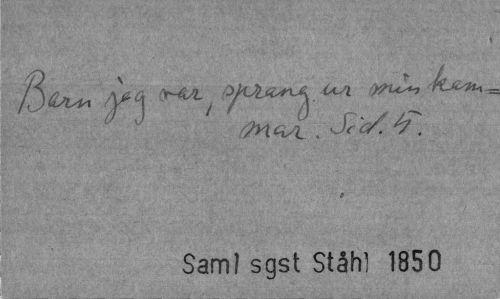 Barn jag var, sprang ur min kam=
mar. Sid. 5.
Saml sgst Ståhl 1850